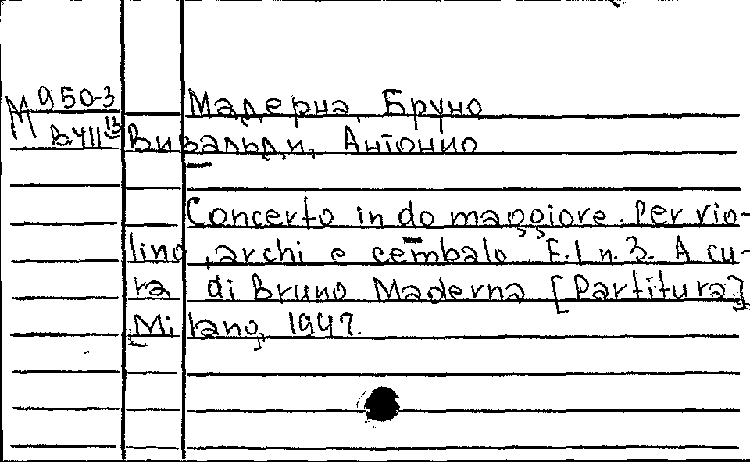 М 950-3
Мадерна, Бруно
В 411 13
Вивальди, Антонио
Concerto in do maggiore. Per vio-
lino, archi e cembalo F. I n. 3. A cu-
ra di Bruno Maderna [Partitura]
[Milano], 1947.